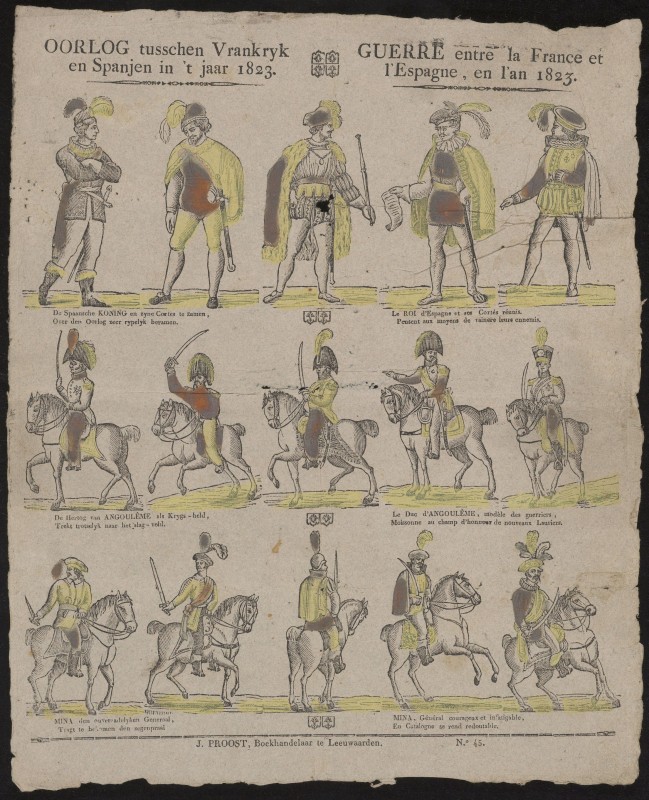 OORLOG tusschen Vrankryk
en Spanjen in 't jaar 1823.
GUERRE entre la France et
l'Espagne, en l'an 1823.
De Spaansche KONING en zyne Cortes te zamen,
Over den Oorlog zeer rypelyk beramen.
Le ROI d'Espagne et ses Cortès réunis,
Pensent aux moyens de vaincre leurs ennemis.
De Hertog van ANGOULÊME als Krygs-held,
Trekt moedelyk naar het slag-veld.
Le Duc d'ANGOULÊME, modèle des guerriers,
Moissonne au champ d'honneur de nouveaux Lauriers.
MINA den Generaal,
Tragt te bekomen den zegenpraal
MINA, Général courageux et infatigable,
En Catalogne se rend redoutable.
J. PROOST, Boekhandelaar te Leeuwaarden.
N.º 45.